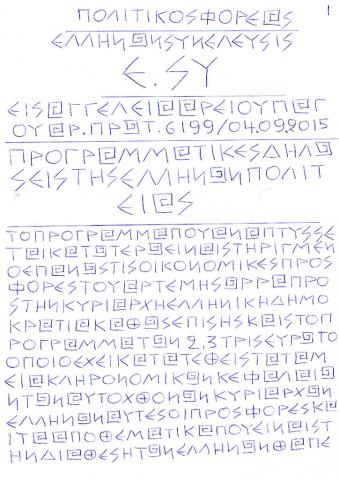 1
ΠΟΛΙΤΙΚΟΣΦΟΡΕΑΣ
ΕΛΛΗΝΩΝΣΥΝΕΛΕΥΣΙΣ
Ε.ΣΥ
ΕΙΣΑΓΓΕΛΕΙΑΑΡΕΙΟΥΠΑΓ
ΟΥΑΡ.ΠΡΩΤ.6199/04.09.2015
ΠΡΟΓΡΑΜΜΑΤΙΚΕΣΔΗΛΩ
ΣΕΙΣΤΗΣΕΛΛΗΝΩΝΠΟΛΙΤ
ΕΙΑΣ
ΤΟΠΡΟΓΡΑΜΜΑΠΟΥΑΝΑΠΤΥΣΣΕ
ΤΑΙΚΑΤΩΤΕΡΩΕΙΝΑΙΣΤΗΡΙΓΜΕΝ
ΟΕΠΑΝΩΣΤΙΣΟΙΚΟΝΟΜΙΚΕΣΠΡΟΣ
ΦΟΡΕΣΤΟΥΑΡΤΕΜΗΣΩΡΡΑΠΡΟ
ΣΤΗΝΚΥΡΙΑΡΧΗΕΛΛΗΝΙΚΗΔΗΜΟ
ΚΡΑΤΙΑΚΑΘΩΣΕΠΙΣΗΣΚΑΙΣΤΟΠ
ΡΟΓΡΑΜΜΑΤΩΝ2,3ΤΡΙΣΕΥΡΩΤΟ
ΟΠΟΙΟΕΧΕΙΚΑΤΑΤΕΘΕΙΣΤΑΤΑΜ
ΕΙΑΚΛΗΡΟΝΟΜΙΚΩΝΚΕΦΑΛΑΙΩ
ΝΤΩΝΑΥΤΟΧΘΟΝΩΝΚΥΡΙΑΡΧΩΝ
ΕΛΛΗΝΩΝΑΥΤΕΣΟΙΠΡΟΣΦΟΡΕΣΚΑ
ΙΤΑΑΠΟΘΕΜΑΤΙΚΑΠΟΥΕΙΝΑΙΣΤ
ΗΝΔΙΑΘΕΣΗΤΩΝΕΛΛΗΝΩΝΘΑΠΕ